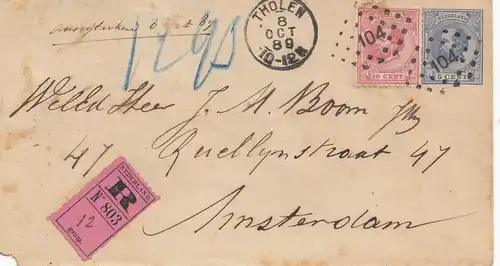 aangetekend 8 oct 89
THOLEN
8
OCT
89
10-12V
104
104
10 CENT
NEDERLAND
5 CENT
WelEd Heer J. M. Boom
47 Quellynstraat 47
Amsterdam
NEDERLAND
R
No 803
12